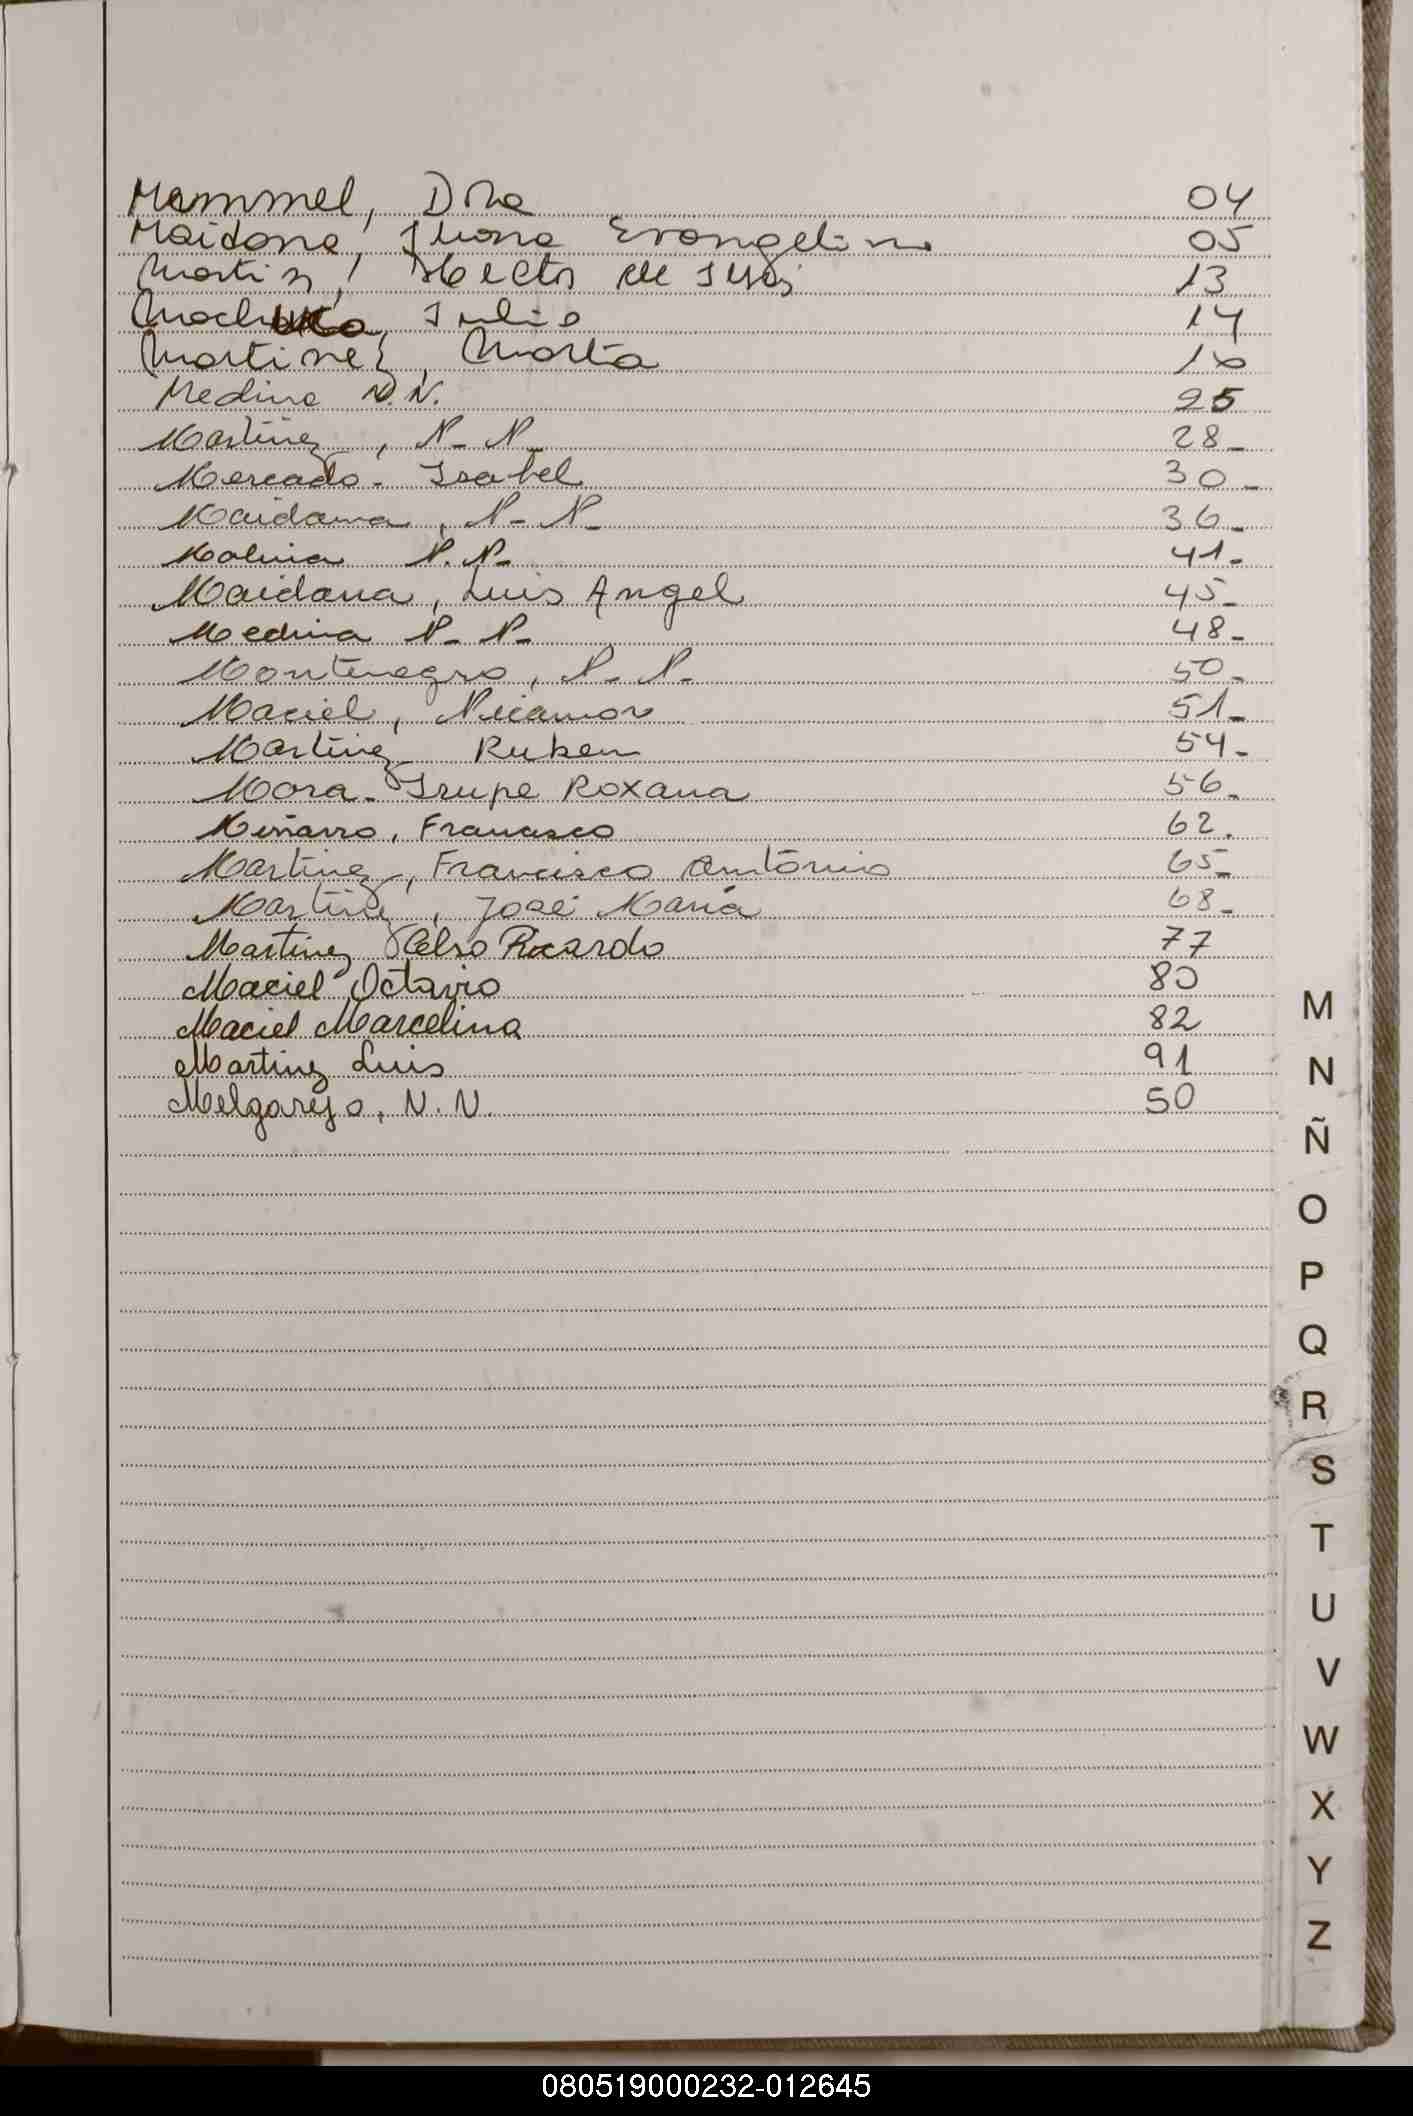 Mammel, Dna 04
Maidana, Juana Evangelina 05
Martin, Hector de Jesus 13
Machuca, Julio 14
Martinez, Marta 16
Medina N.N. 25
Martinez, N-N 28-
Mercado- Isabel 30-
Maidana, N-N- 36-
Molina N.N- 41-
Maidana, Luis Angel 45-
Medina N-N- 48-
Montenegro, N-N- 50-
Maciel, Nicanor 51-
Martinez Ruben 54-
Mora- Irupe Roxana 56-
Miñarro, Francisco 62.
Martinez, Francisco Antonio 65-
Martinez, José Maria 68-
Martinez Celso Ricardo 77
Maciel Octavio 80
Maciel Marcelina 82
Martinez Luis 91
Melgarejo, N.N. 50
M
N
Ñ
O
P
Q
R
S
T
U
V
W
X
Y
Z
080519000232-012645